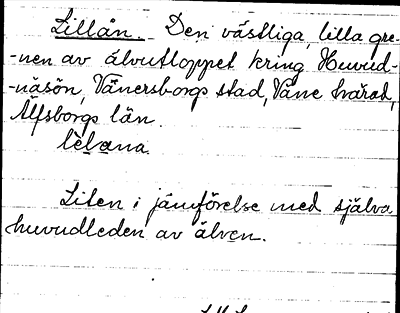 Lillån. Den västliga, lilla gre-
-nen av älvutloppet kring Huvud-
-näsön, Vänersborgs stad, Väne härad,
Älfsborgs län.
lèlana.
Liten i jämförelse med själva
huvudleden av älven.